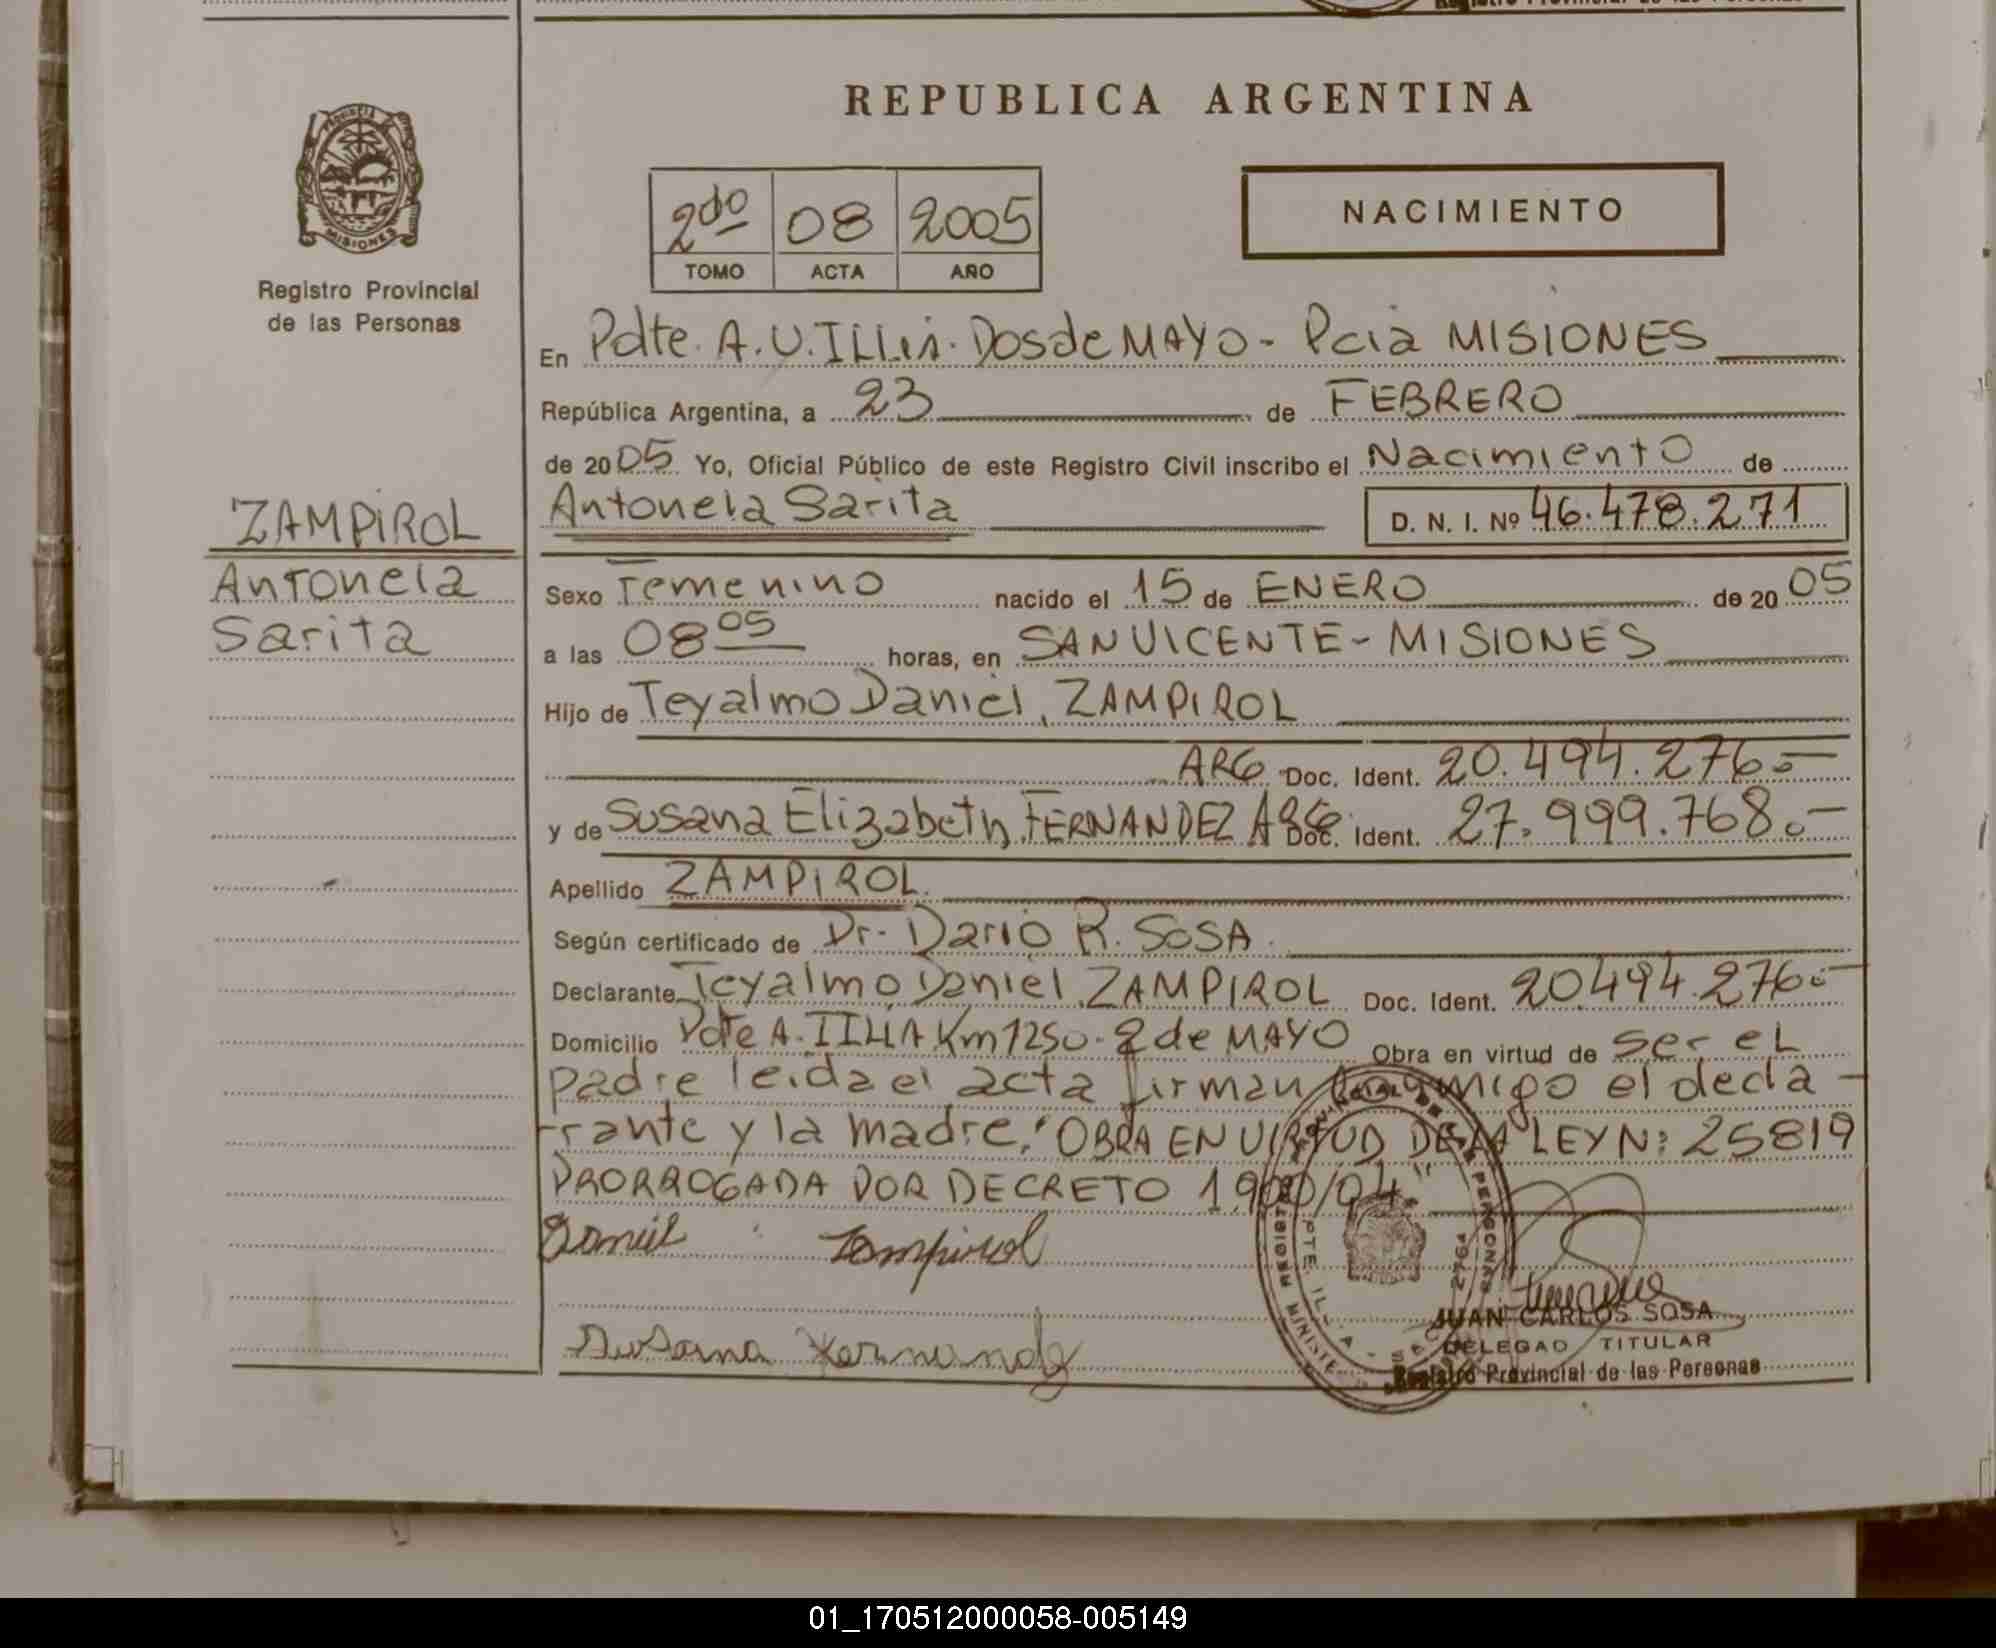 REPUBLICA ARGENTINA
PROVINCIA
MISIONES
Registro Provincial
de las Personas
2do 08 2005
TOMO ACTA AÑO
NACIMIENTO
En Pdte. A.U. ILLIA. Dos de MAYO - Pcia MISIONES
República Argentina, a 23 de FEBRERO
de 2005 Yo, Oficial Público de este Registro Civil inscribo el Nacimiento de
ZAMPIROL
Antonela
Sarita
Antonela Sarita D. N. I. Nº 46.478.271
Sexo Femenino nacido el 15 de ENERO de 2005
a las 08 05 horas, en SAN VICENTE - MISIONES
Hijo de Teyalmo Daniel, ZAMPIROL
ARG Doc. Ident. 20.494.276.-
y de Susana Elizabeth, FERNANDEZ ARG Doc. Ident. 27.999.768.-
Apellido ZAMPIROL.
Según certificado de Dr. Dario R. SOSA.
Declarante Teyalmo Daniel ZAMPIROL Doc. Ident. 20.494.276.-
Domicilio Pdte A. ILLIA Km 1250. 2 de MAYO Obra en virtud de ser eL
padre leida el acta firman conmigo el decla-
rante y la madre. "OBRA EN VIRTUD DE LA LEY N: 25819
PRORROGADA POR DECRETO 1,900/04"
Daniel Zampirol
Susana Fernandez
JUAN CARLOS SOSA
DELEGADO TITULAR
Registro Provincial de las Personas
01_170512000058-005149